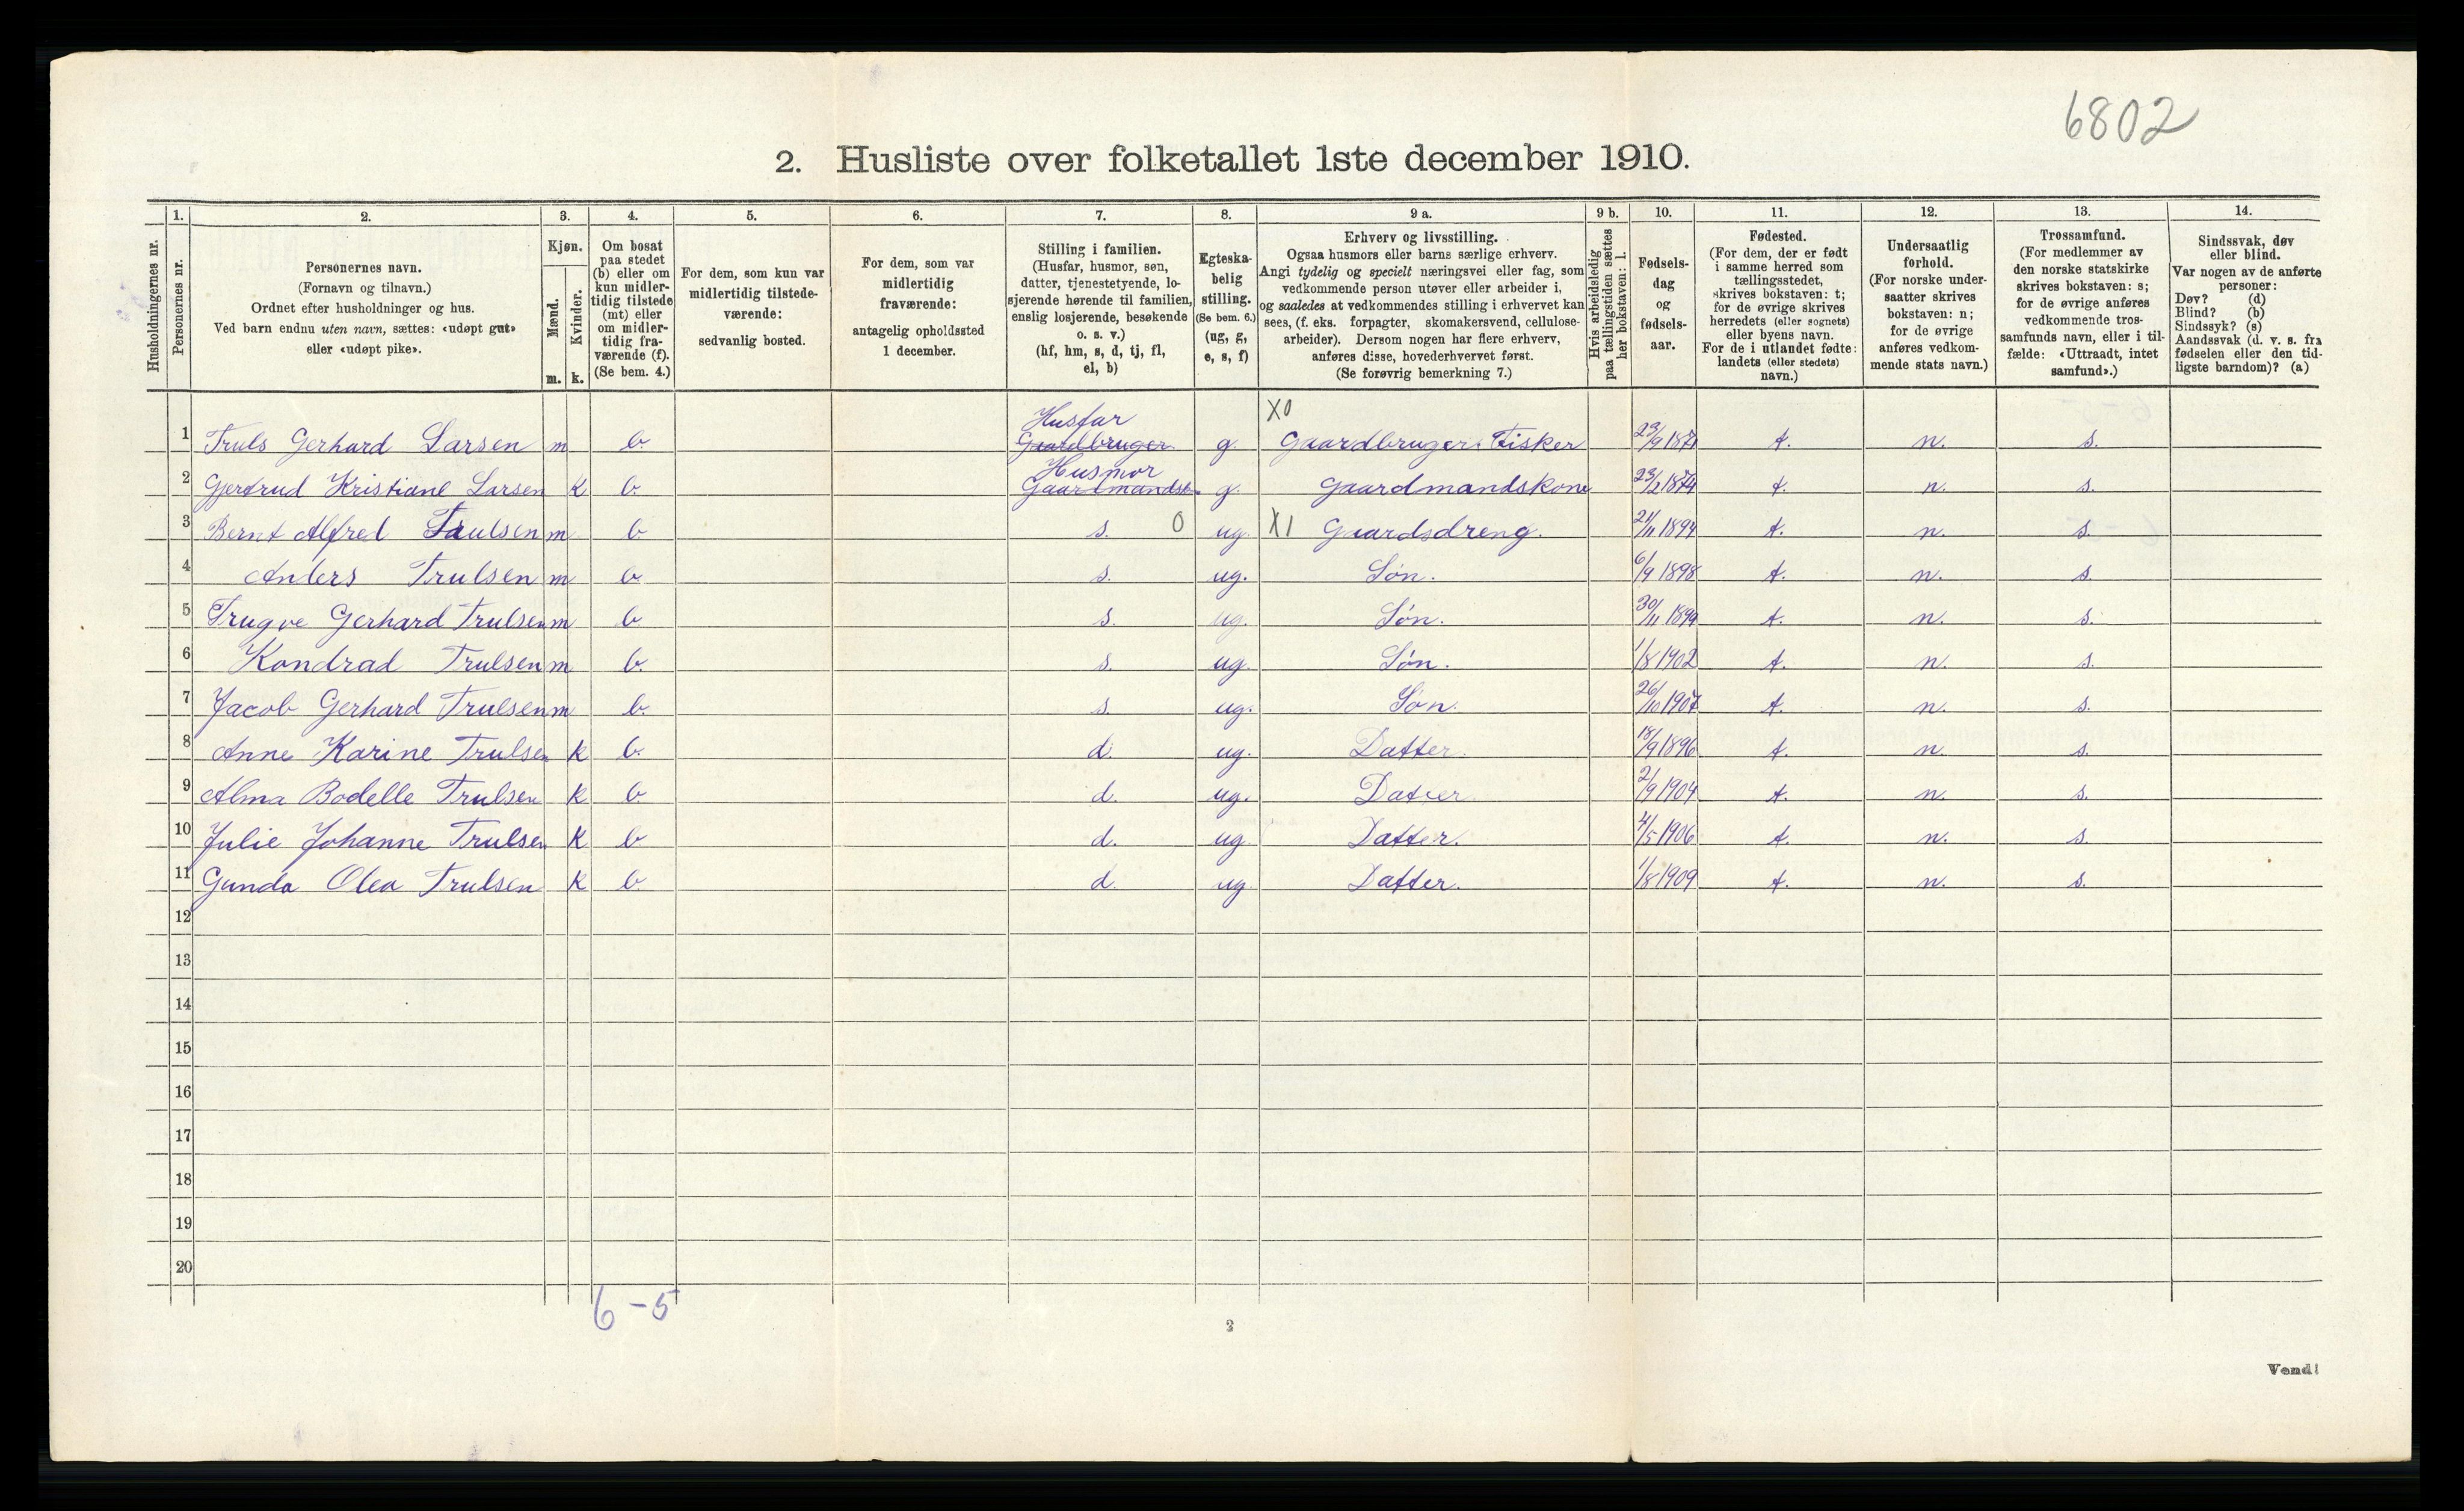 6802
2. Husliste over folketallet 1ste december 1910.
1. 2. 3. 4. 5. 6. 7. 8. 9 a. 9 b. 10. 11. 12. 13. 14.
Husholdningernes nr.
Personernes nr.
Personernes navn.
(Fornavn og tilnavn.)
Ordnet efter husholdninger og hus.
Ved barn endnu uten navn, sættes: «udøpt gut»
eller «udøpt pike».
Kjøn.
Mænd.
Kvinder.
m. k.
Om bosat
paa stedet
(b) eller om
kun midler-
tidig tilstede
(mt) eller
om midler-
tidig fra-
værende (f).
(Se bem. 4.)
For dem, som kun var
midlertidig tilstede-
værende:
sedvanlig bosted.
For dem, som var
midlertidig
fraværende:
antagelig opholdssted
1 december.
Stilling i familien.
(Husfar, husmor, søn,
datter, tjenestetyende, lo-
sjerende hørende til familien,
enslig losjerende, besøkende
o. s. v.)
(hf, hm, s, d, tj, fl,
el, b)
Egteska-
belig
stilling.
(Se bem. 6.)
(ug, g,
e, s, f)
Erhverv og livsstilling.
Ogsaa husmors eller barns særlige erhverv.
Angi tydelig og specielt næringsvei eller fag, som
vedkommende person utøver eller arbeider i,
og saaledes at vedkommendes stilling i erhvervet kan
sees, (f. eks. forpagter, skomakersvend, cellulose-
arbeider). Dersom nogen har flere erhverv,
anføres disse, hovederhvervet først.
(Se forøvrig bemerkning 7.)
Hvis arbeidsledig
paa tællingstiden sættes
her bokstaven: l.
Fødsels-
dag
og
fødsels-
aar.
Fødested.
(For dem, der er født
i samme herred som
tællingsstedet,
skrives bokstaven: t;
for de øvrige skrives
herredets (eller sognets)
eller byens navn.
For de i utlandet fødte:
landets (eller stedets)
navn.)
Undersaatlig
forhold.
(For norske under-
saatter skrives
bokstaven: n;
for de øvrige
anføres vedkom-
mende stats navn.)
Trossamfund.
(For medlemmer av
den norske statskirke
skrives bokstaven: s;
for de øvrige anføres
vedkommende tros-
samfunds navn, eller i til-
fælde: «Uttraadt, intet
samfund».)
Sindssvak, døv
eller blind.
Var nogen av de anførte
personer:
Døv? (d)
Blind? (b)
Sindssyk? (s)
Aandssvak (d. v. s. fra
fødselen eller den tid-
ligste barndom)? (a)
Husfar X0
1 Truls Gerhard Larsen m b. Gaardbruger. g. Gaardbruger. Fisker 23/9 1871 t. n. s.
Husmor
2 Gjertrud Kristiane Larsen k b. Gaardmandsk. g. Gaardmandskone 23/2 1874 t. n. s.
3 Bernt Alfred Trulsen m b s. 0 ug. X1 Gaardsdreng. 21/11 1894 t. n. s.
4 Anders Trulsen m b. s. ug. Søn. 6/9 1898 t. n. s.
5 Trugve Gerhard Trulsen m b s. ug. Søn. 30/11 1899 t. n. s.
6 Kondrad Trulsen m b. s. ug. Søn. 1/8 1902 t. n. s.
7 Jacob Gerhard Trulsen m b. s. ug. Søn. 26/10 1907 t. n. s.
8 Anne Karine Trulsen k b. d. ug. Datter. 18/9 1896 t. n. s.
9 Alma Bodelle Trulsen k b. d. ug. Datter 2/9 1904 t. n. s.
10 Julie Johanne Trulsen k b d. ug. Datter. 4/5 1906 t. n. s.
11 Gunda Olea Trulsen k b. d. ug. Datter. 1/8 1909 t. n. s.
12
13
14
15
16
17
18
19
20
6-5
2
Vend!